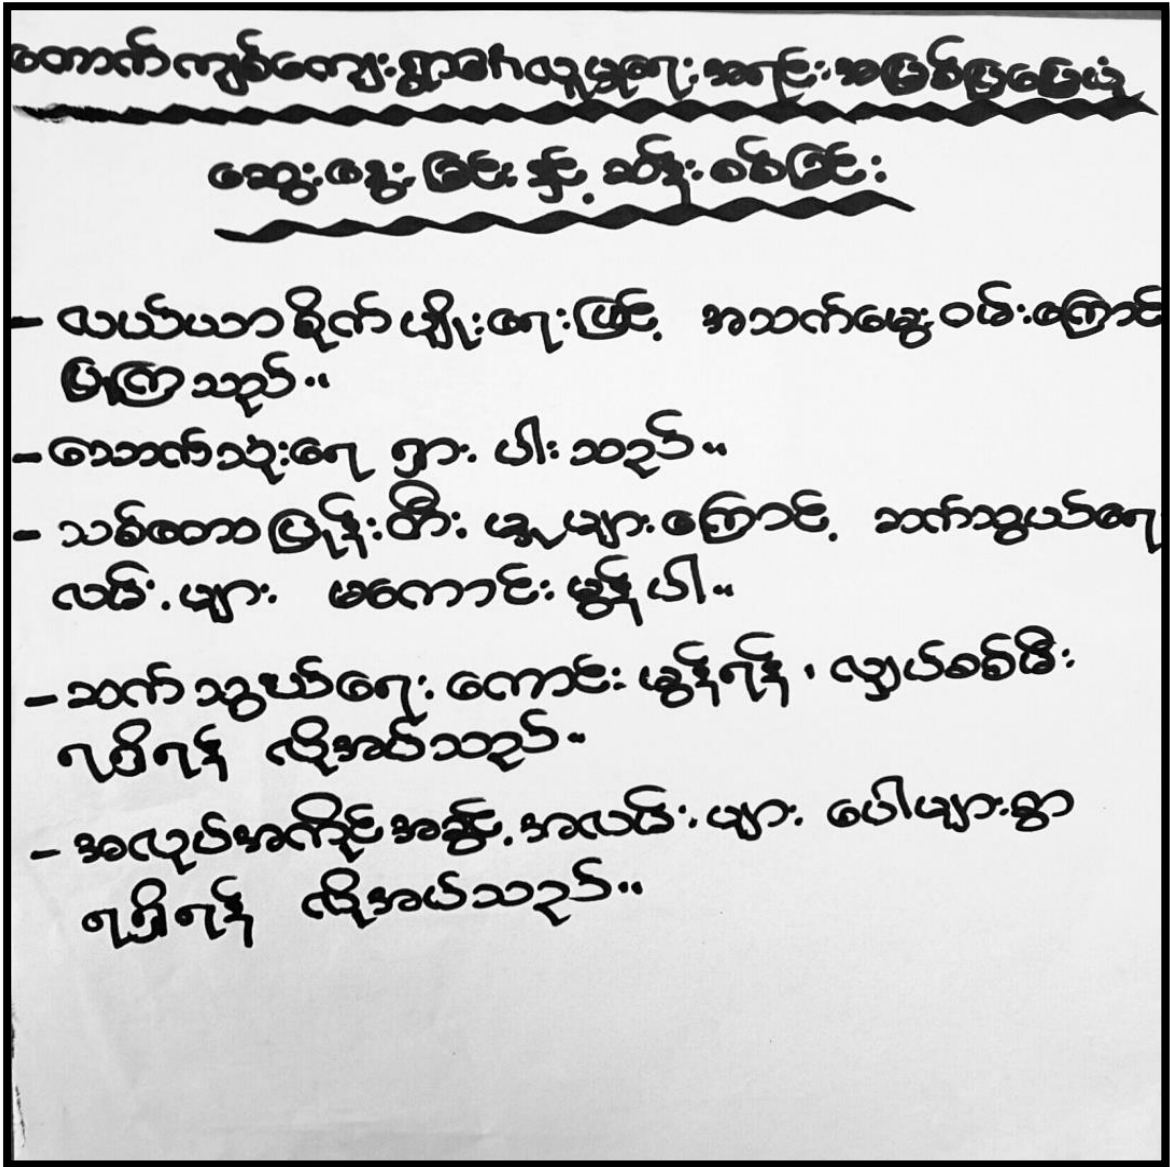 တောက်ကျစ်ကျေးရွာ၏လူမှုရေးအရင်းအမြစ်ပြမြေပုံ
ဆွေးနွေးခြင်းနှင့်ဆန်းစစ်ခြင်း
- လယ်ယာစိုက်ပျိုးရေးဖြင့် အသက်မွေးဝမ်းကြောင်း
ပြုကြသည်။
- သောက်သုံးရေ ရှားပါးသည်။
- သစ်တောပြုန်းတီးမှုများကြောင့် ဆက်သွယ်ရေ
လမ်းများ မကောင်းမွန်ပါ။
- ဆက်သွယ်ရေးကောင်းမွန်ရန်၊ လျှပ်စစ်မီး
ရရှိရန် လိုအပ်သည်။
- အလုပ်အကိုင်အခွင့်အလမ်းများ ပေါများစွာ
ရရှိရန် လိုအပ်သည်။